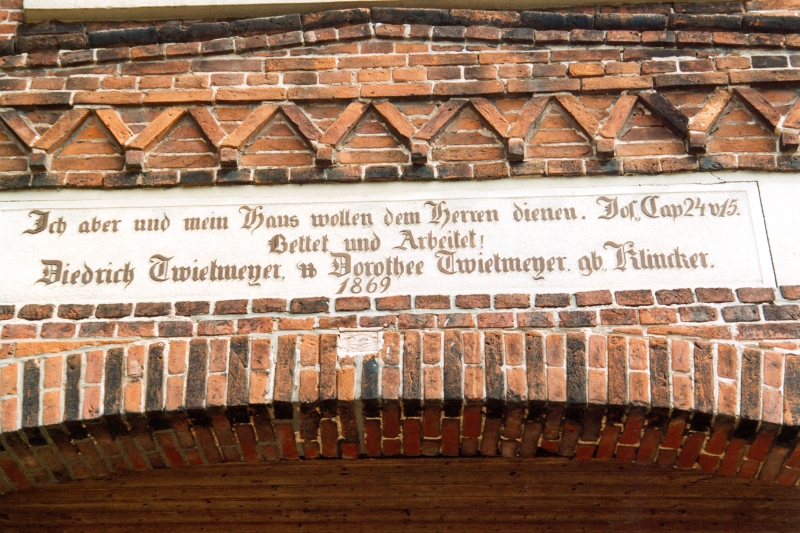 Ich aber und mein Haus wollen dem Herren dienen. Jos. Cap 24 v 15.
Bettet und Arbeitet!
Diedrich Twietmeyer. u Dorothee Twietmeyer. gb. Klincker.
1869